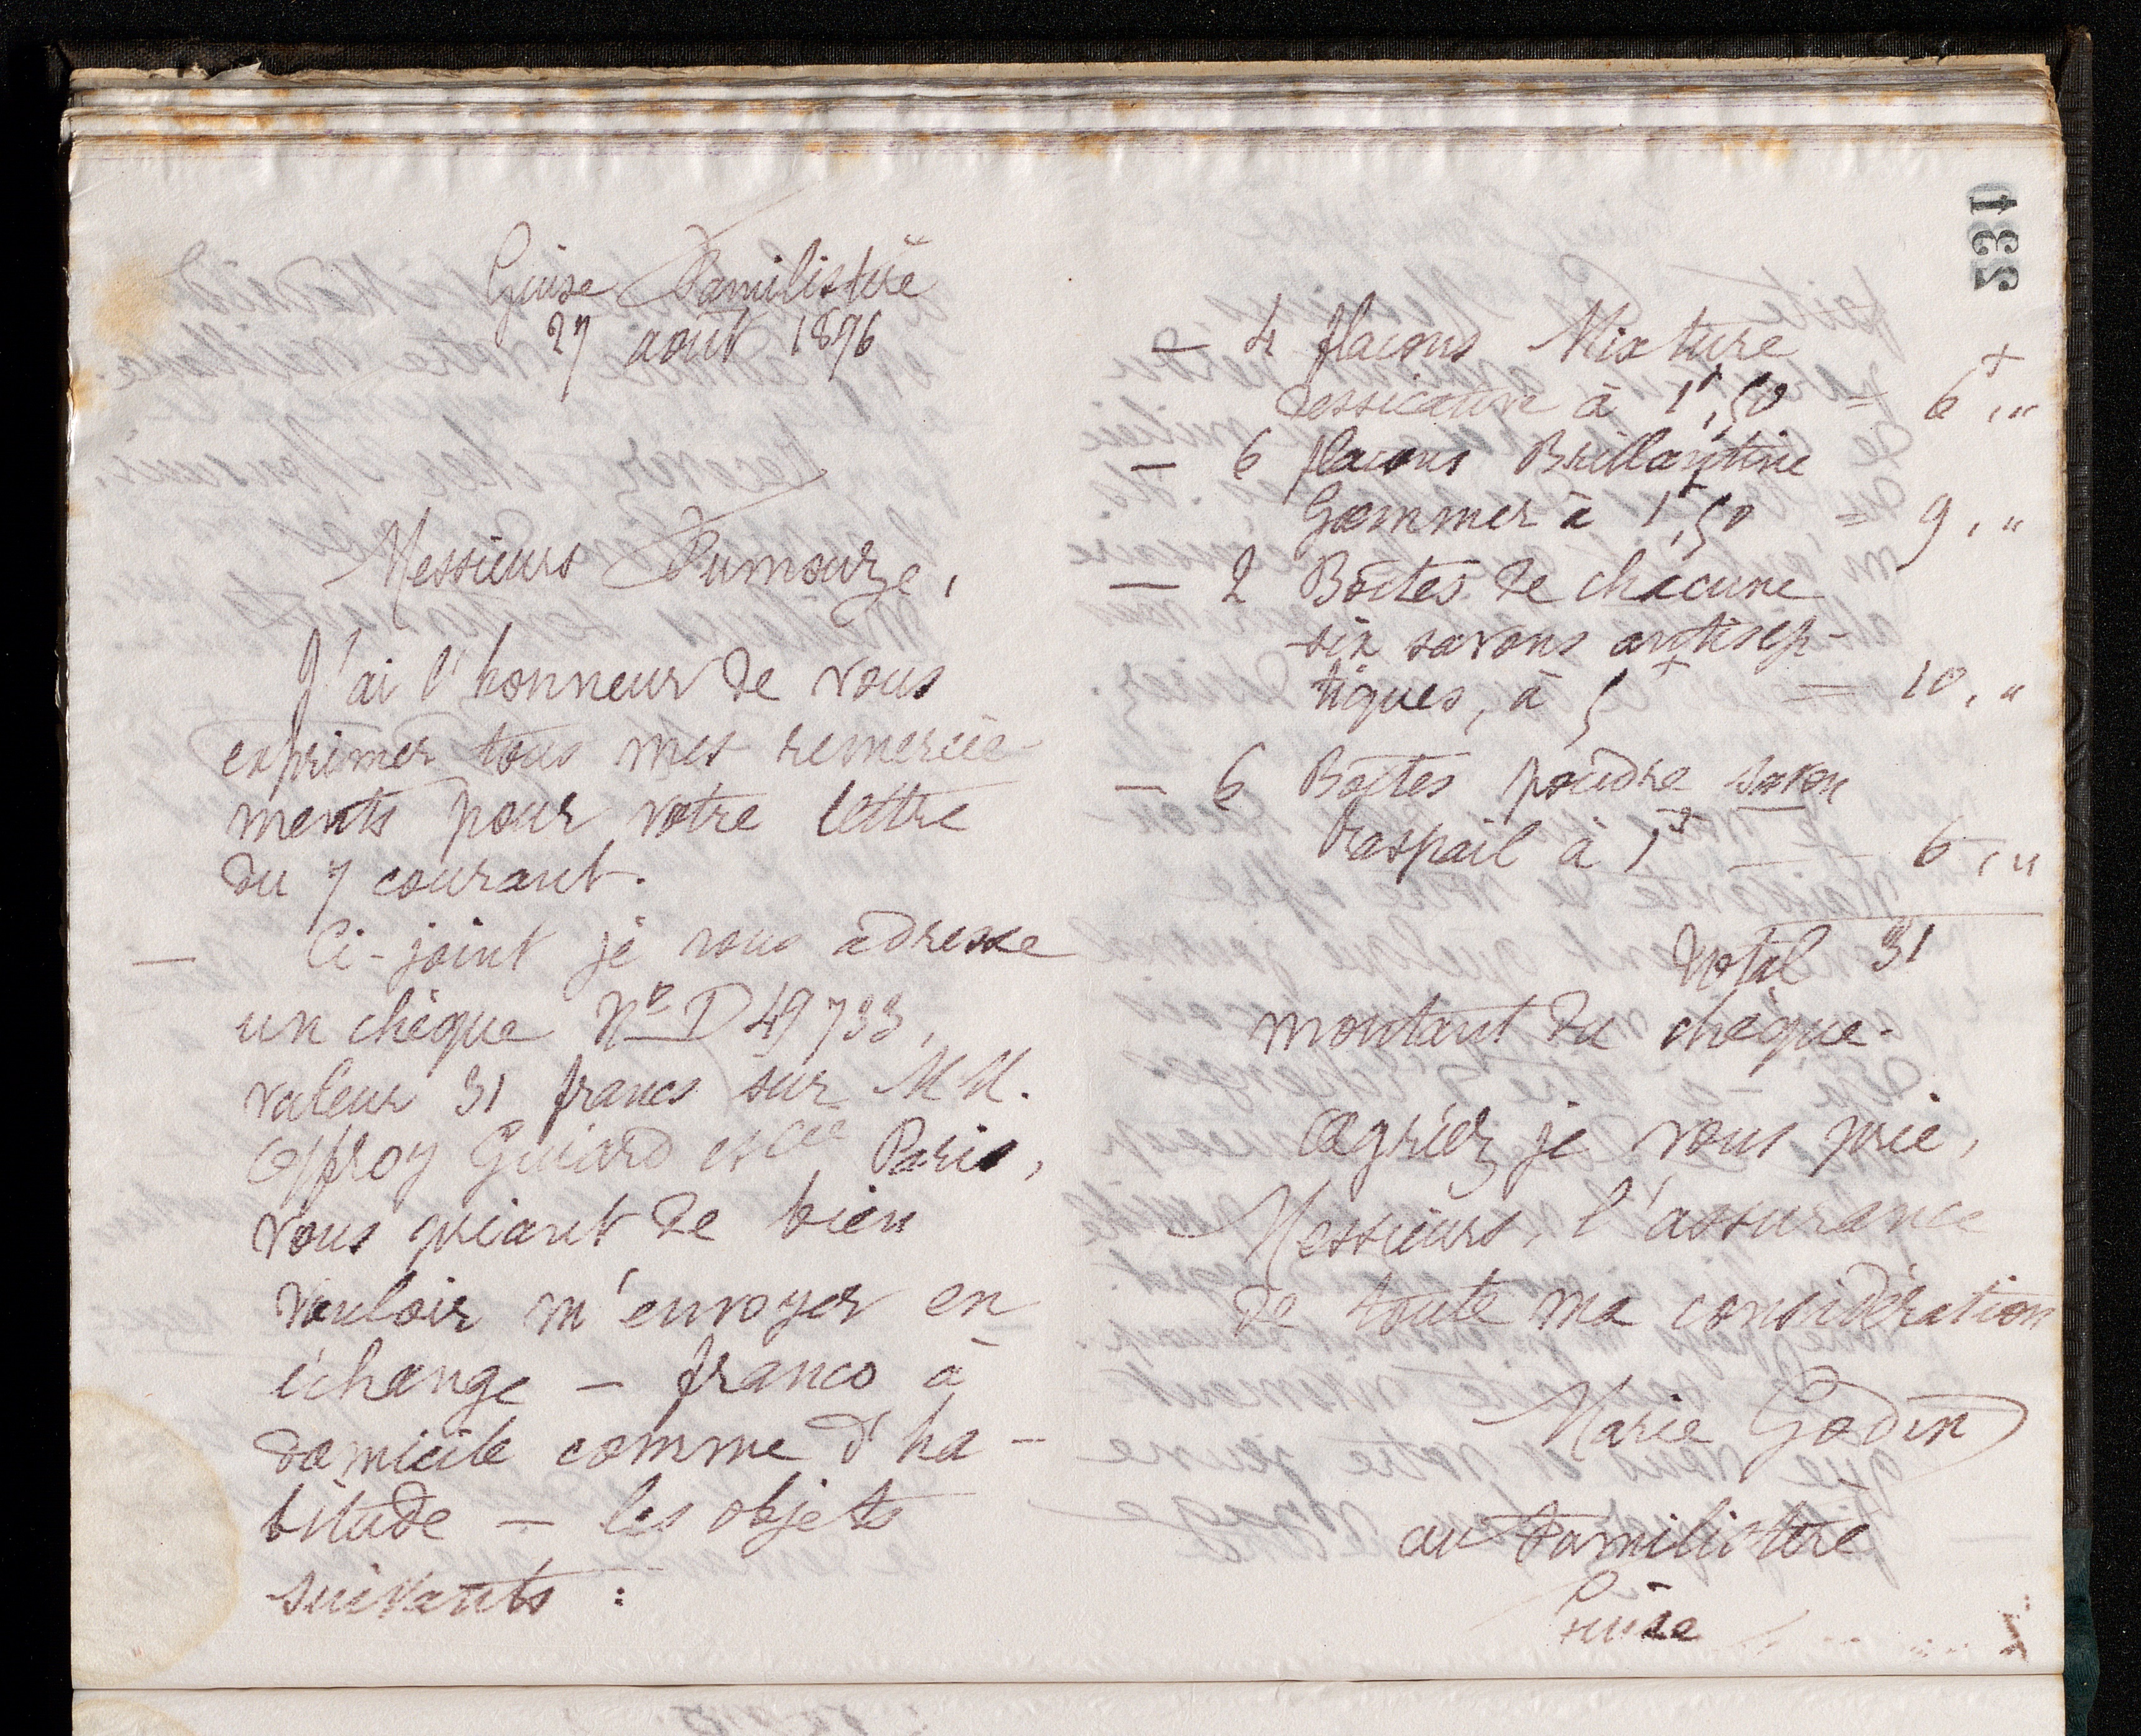 Guise Familistère
27 août 1896
Messieurs Fumouze,
J'ai l'honneur de vous
exprimer tous mes remercie-
ments pour votre lettre
du 7 courant.
— Ci-joint je vous adresse
un chèque N° D 49733,
valeur 31 francs sur MM.
Offroy Guiard et Cie Paris,
vous priant de bien
vouloir m'envoyer en
échange — franco à
domicile comme d'ha-
bitude — les objets
suivants :
331
— 4 flacons Mixture
dessicative à 1f,50 = 6f,"
— 6 flacons Brillantine
Gommer à 1f,50 = 9,"
— 2 Boîtes de chacune
six savons antisep-
tiques, à 5f = 10,"
— 6 Boîtes poudre savon
Raspail à 1f — — 6,"
Total 31
montant du chèque.
Agréez je vous prie,
Messieurs, l'assurance
de toute ma considération
Marie Godin
au Familistère
Guise